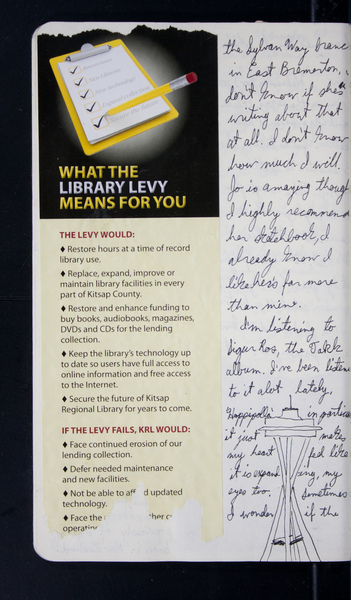 WHAT THE
LIBRARY LEVY
MEANS FOR YOU
THE LEVY WOULD:
♦ Restore hours at a time of record
library use.
♦ Replace, expand, improve or
maintain library facilities in every
part of Kitsap County.
♦ Restore and enhance funding to
buy books, audiobooks, magazines,
DVDs and CDs for the lending
collection.
♦ Keep the library's technology up
to date so users have full access to
online information and free access
to the Internet.
♦ Secure the future of Kitsap
Regional Library for years to come.
IF THE LEVY FAILS, KRL WOULD:
♦ Face continued erosion of our
lending collection.
♦ Defer needed maintenance
and new facilities.
♦ Not be able to afford updated
technology.
♦ Face the
operatin
the Sylvan Way branc
in East Bremerton,
don't know if she's
writing about that
at all. I don't know
how much I will.
Jo is amazing though
I highly recommend
her sketchbook, I
already know I
like hers far more
than mine.
I'm listening to
Sigur Ros, the Takk
album. I've been listen
to it alot lately,
Hoppipolla in particu
it just makes
my heart feel like
it is expanding, my
eyes too. Sometimes
I wonder if the